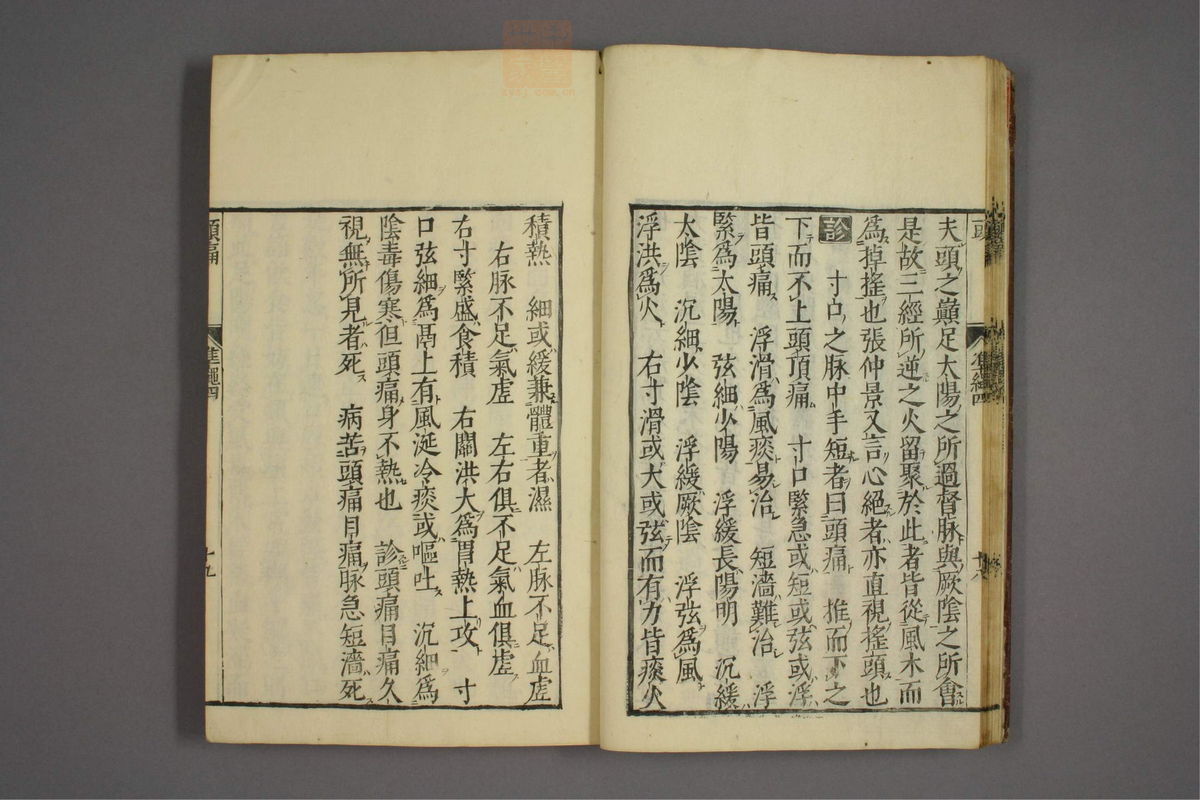 夫頭之巔足太陽之所過督脉與厥陰之所會
是故三經所逆之火留聚於此者皆從風木而
爲掉搖也張仲景又言心絕者亦直視搖頭也
診　寸口之脉中手短者曰頭痛　推而下之
下而不上頭頂痛　寸口緊急或短或弦或浮
皆頭痛　浮滑爲風痰易治　短濇難治　浮
緊爲太陽　弦細少陽　浮緩長陽明　沉緩
太陰　沉細少陰　浮緩厥陰　浮弦爲風
浮洪爲火　右寸滑或大或弦而有力皆痰火
積熱　細或緩兼體重者濕　左脉不足血虛
右脉不足氣虛　左右俱不足氣血俱虛
右寸緊盛食積　右關洪大爲胃熱上攻　寸
口弦細爲鬲上有風涎冷痰或嘔吐　沉細爲
陰毒傷寒但頭痛身不熱也　診頭痛目痛久
視無所見者死　病苦頭痛目痛脉急短濇死
頭痛
準繩四
十九